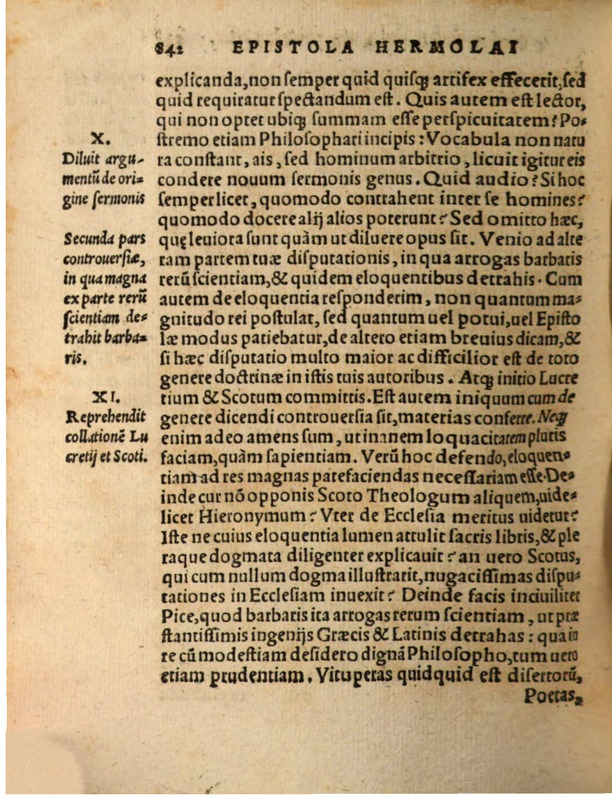 842 EPISTOLA HERMOLAI
explicanda, non semper quid quisq; artifex effecerit, sed
quid requiratur spectandum est. Quis autem est lector,
qui non optet ubiq; summam esse perspicuitatem? Po-
stremo etiam Philosophari incipis: Vocabula non natu
ra constant, ais, sed hominum arbitrio, licuit igitur eis
condere nouum sermonis genus. Quid audio? Si hoc
semper licet, quomodo contrahent inter se homines?
quomodo docere alij alios poterunt? Sed omitto hæc,
quę leuiora sunt quàm ut diluere opus sit. Venio ad alte
ram partem tuæ disputationis, in qua arrogas barbaris
rerū scientiam, & quidem eloquentibus detrahis. Cum
autem de eloquentia responderim, non quantum ma-
gnitudo rei postulat, sed quantum uel potui, uel Episto
læ modus patiebatur, de altero etiam breuius dicam, &
si hæc disputatio multo maior ac difficilior est de toto
genere doctrinæ in istis tuis autoribus. Atq; initio Lucre
tium & Scotum committis. Est autem iniquum cum de
genere dicendi controuersia sit, materias conferre. Neq;
enim adeo amens sum, ut inanem loquacitatem pluris
faciam, quàm sapientiam. Verū hoc defendo, eloquen-
tiam ad res magnas patefaciendas necessariam esse. De-
inde cur nō opponis Scoto Theologum aliquem, uide-
licet Hieronymum? Vter de Ecclesia meritus uidetur?
Iste ne cuius eloquentia lumen attulit sacris libris, & ple
raque dogmata diligenter explicauit? an uero Scotus,
qui cum nullum dogma illustrarit, nugacissimas dispu-
tationes in Ecclesiam inuexit? Deinde facis inciuiliter
Pice, quod barbaris ita arrogas rerum scientiam, ut præ
stantissimis ingenijs Græcis & Latinis detrahas: qua in
re cū modestiam desidero dignā Philosopho, tum uero
etiam prudentiam. Vituperas quidquid est disertorū,
Poetas,
X.
Diluit argu-
mentū de ori-
gine sermonis
Secunda pars
controuersiæ,
in qua magna
ex parte rerū
scientiam de-
trahit barba-
ris.
XI.
Reprehendit
collationē Lu
cretij et Scoti.